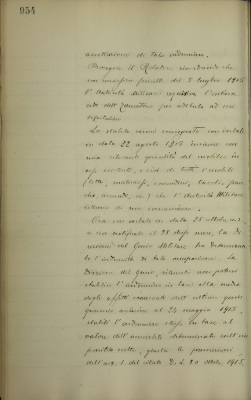 954
accettazione di tale indennizzo.
Prosegue il Relatore ricordando che
con manifesto fascetto del 5 luglio 1915
l'Autorità Militare requisiva l'intero
dell' per adibirlo ad uso
Lo stabile venne consegnato con verbale
in data 22 agosto 1915 insieme con
una rilevante quantità del mobilio in
esso esistente, e cioè di tutti i mobili
(letti, materassi, comodini, tavoli, pan-
che, armadi, ecc.) che l'Autorità Militare
ritenne di sua convenienza.
Ora con verbale in data 28 ottobre u.s.
e noi notificato il 28 detto mese, la Di-
rezione del Genio Militare ha determina-
to l'indennità di tale occupazione. La
Direzione del Genio, ritenuto non potersi
stabilire l'indennizzo in base alla media
degli affitti riscossi nell'ultimo quin-
quennio anteriore al 24 maggio 1915,
stabilì l'indennizzo stesso in base al
valore dell'immobile determinato nell'im-
ponibile netto, giusta le prescrizioni
dell'art. 1. del citato D. L. 20 ottobre 1915,